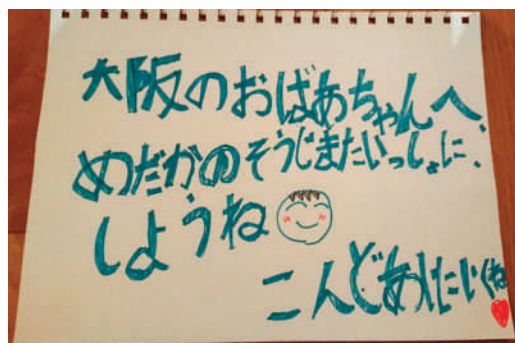 大阪のおばあちゃんへ、
めだかのそうじまたいっしょに、
しようね
こんどあいにいくね